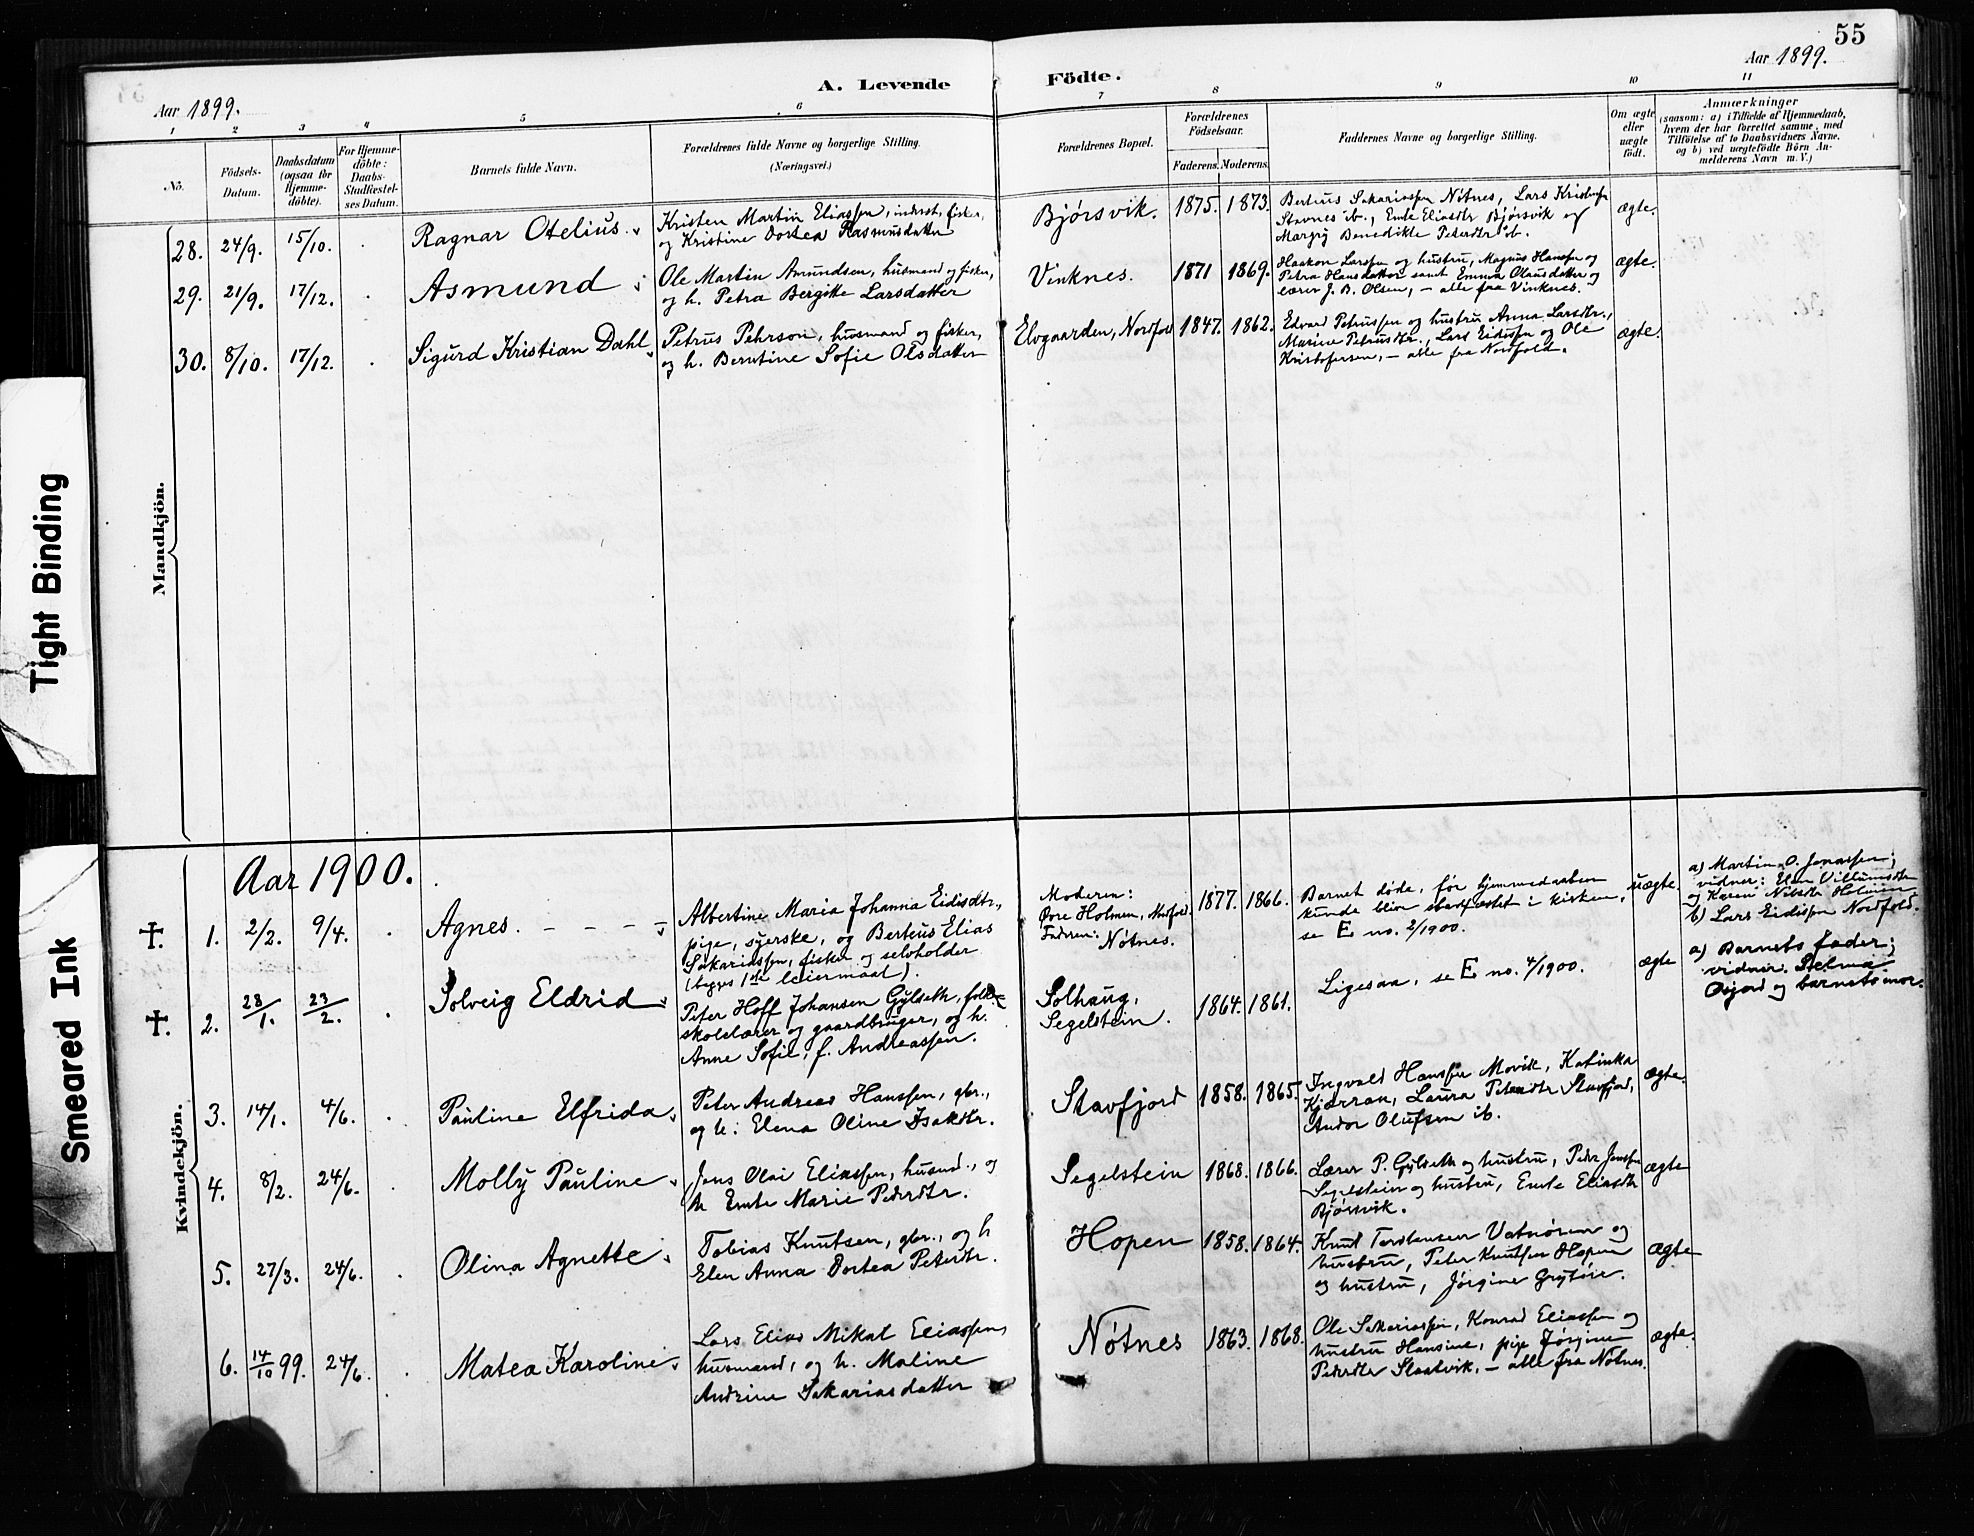 55
Aar 1899.
A. Levende Födte.
Aar 1899.
1 2 3 4 5 6 7 8 9 10 11
No.
Födsels-
Datum.
Daabsdatum
(ogsaa for
Hjemme-
döbte).
For Hjemme-
döbte:
Daabs-
Stadfæstel-
ses Datum.
Barnets fulde Navn.
Forældrenes fulde Navne og borgerlige Stilling.
(Næringsvei.)
Forældrenes Bopæl.
Forældrenes
Födselsaar.
Faderens. Moderens.
Faddernes Navne og borgerlige Stilling.
Om ægte
eller
uægte
födt.
Anmærkninger
(saasom: a) i Tilfælde af Hjemmedaab,
hvem der har forrettet samme, med
Tilföielse af to Daabsvidners Navne.
og b) ved uægtefödte Börn An-
melderens Navn m. V.)
Mandkjön.
28. 24/9. 15/10. Ragnar Otelius.
Kristen Martin Eliassen, inderst, fisker,
og Kristine Dortea Rasmusdatter
Bjørsvik. 1875. 1873.
Bertius Sakariassen Nøtnes, Lars
Stavnes ib., Emte Eliasdtr Bjørsvik og
Margrij Benedikte Petersdtr ib.
ægte.
29. 21/9. 17/12. Asmund
Ole Martin Amundsen, husmand og fisker,
og h. Petra Bergitte Larsdatter
Vinknes. 1871 1869.
Haakon Larssen og hustru, Magnus Hanssen og
Petra Hansdatter samt Emma Olausdatter og
lærer J. B. Olsen, – alle fra Vinknes.
ægte.
30. 8/10. 17/12. Sigurd Kristian Dahl
Petrus Pehrson, husmand og fisker,
og h. Berntine Sofie Olsdatter
Elvgaarden, Nordfold 1847. 1862.
Edvard Petrussen og hustru Anna Larsdtr.,
Marine Petrusdtr., Lars Eidissen og Ole
Kristofersen, – alle fra Nordfold.
ægte.
Tight Binding
Smeared Ink
Kvindekjön.
Aar 1900.
†. 1. 2/2. 9/4. Agnes.
Albertine Maria Johanna Eidisdtr.,
pige, syerske, og Berteus Elias
Sakariassen, fisker og selvholder
(begges 1ste leiermaal).
Moderen:
Øvre Holmen, Nordfold.
Faderen:
Nøtnes.
1877. 1866.
Barnet døde, før hjemmedaaben
kunde blive stadfæstet i kirken,
se E no. 2/1900.
uægte.
a) Martin O. Jonassen;
vidner: Elen Villumsdtr
og Karen Nilsdtr Holmen
b) Lars Eidissen Nordfold.
†. 2. 28/1. 23/2. Solveig Eldrid
Peter Hoff Johansen Gylseth, folke-
skolelærer og gaardbruger, og h.
Anne Sofie, f. Andreassen.
Solhaug,
Segelstein.
1864. 1861.
Ligesaa, se E no. 4/1900.
ægte
a) Barnets fader;
vidner: Selma
og barnets mor.
3. 14/1. 4/6. Pauline Elfrida
Peter Andreas Hanssen, gbr.,
og h: Elena Oline Isaksdtr.
Stavfjord 1858. 1865.
Ingvald Hanssen Movik, Katinka
Kjærran, Laura Petersdtr Stavfjord,
Andor Olufsen ib.
ægte.
4. 8/2. 24/6. Molly Pauline
Jens Olai Eliassen, husmd., og
h Emte Marie Pedersdtr.
Segelstein 1868. 1866.
Lærer P. Gylseth og hustru, Peder Jenssen
Segelstein og hustru, Emte Eliasdtr
Bjørsvik.
ægte
5. 27/3. 24/6. Olina Agnette
Tobias Knutsen, gbr., og h
Elen Anna Dortea Petersdtr.
Hopen 1858. 1864.
Knut Tordensen Vatnøren og
hustru, Peter Knutsen Hopen
og hustru, Jørgine Grytøie.
ægte
6. 14/10 99. 24/6. Matea Karoline
Lars Elias Mikal Eliassen,
husmand, og h. Maline
Andrine Sakariasdatter
Nøtnes 1863. 1868.
Ole Sakariassen, Konrad Eliassen og
hustru Hansine, pige Jørgine
Pedersdtr Slaatvik, – alle fra Nøtnes.
ægte.